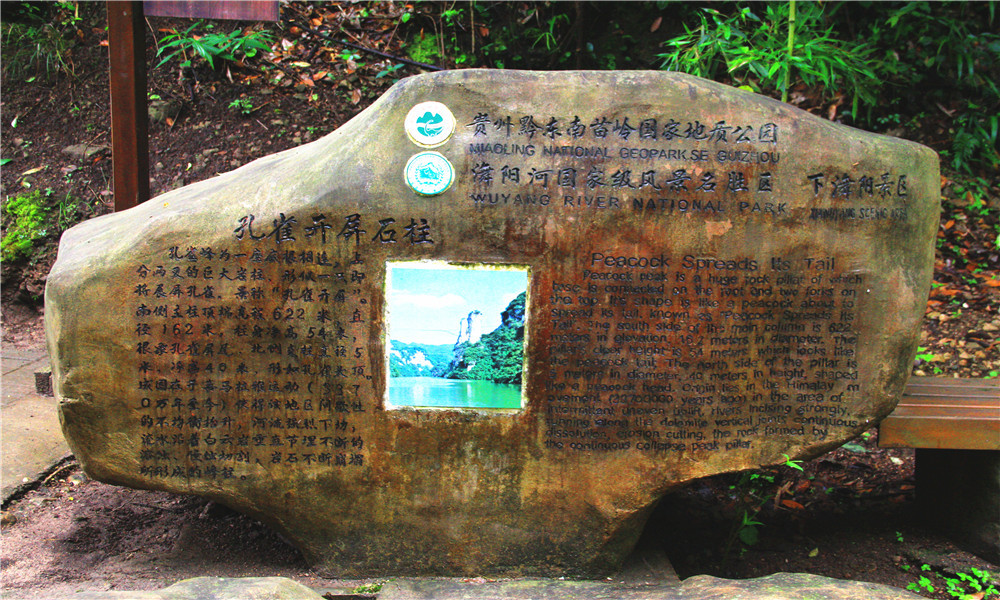 贵州黔东南苗岭国家地质公园
MIAOLING NATIONAL GEOPARK SE GUIZHOU
㵲阳河国家级风景名胜区
WUYANG RIVER NATIONAL PARK
下㵲阳景区
孔雀开屏石柱
孔雀峰为一座底根相连,上即
分两叉的巨大岩柱,形状一只
将展屏孔雀,景称“孔雀开屏”。
南侧主柱顶端高程622米,直
径162米,柱身净高54米,
米,净高40米,形如孔雀头顶。
的不均衡抬升,河流强烈下切,
流水沿着白云岩垂直节理不断的
溶蚀、侵蚀切割,岩石不断崩塌
所形成的峰柱。
Peacock Spreads Its Tail
Peacock peak is a huge rock pillar of which
base is connected on the root and two forks on
the top. Its shape is like a peacock about to
spread its tail, known as "Peacock Spreads Its
Tail". The south side of its main column is 622
meters in elevation, 16.2 meters in diameter. The
pillar's clear height is 54 meters which looks like
a peacock tail. The north side of the pillar is
5 meters in diameter, 40 meters in height, shaped
like a peacock head. Origin lies in the Himalay m
ovement years in the area of
intermittent uneven uplift, rivers incising strongly,
running along the dolomite vertical joints continuous
dissolution, erosion cutting, the rock formed by
the continuous collapse peak pillar.